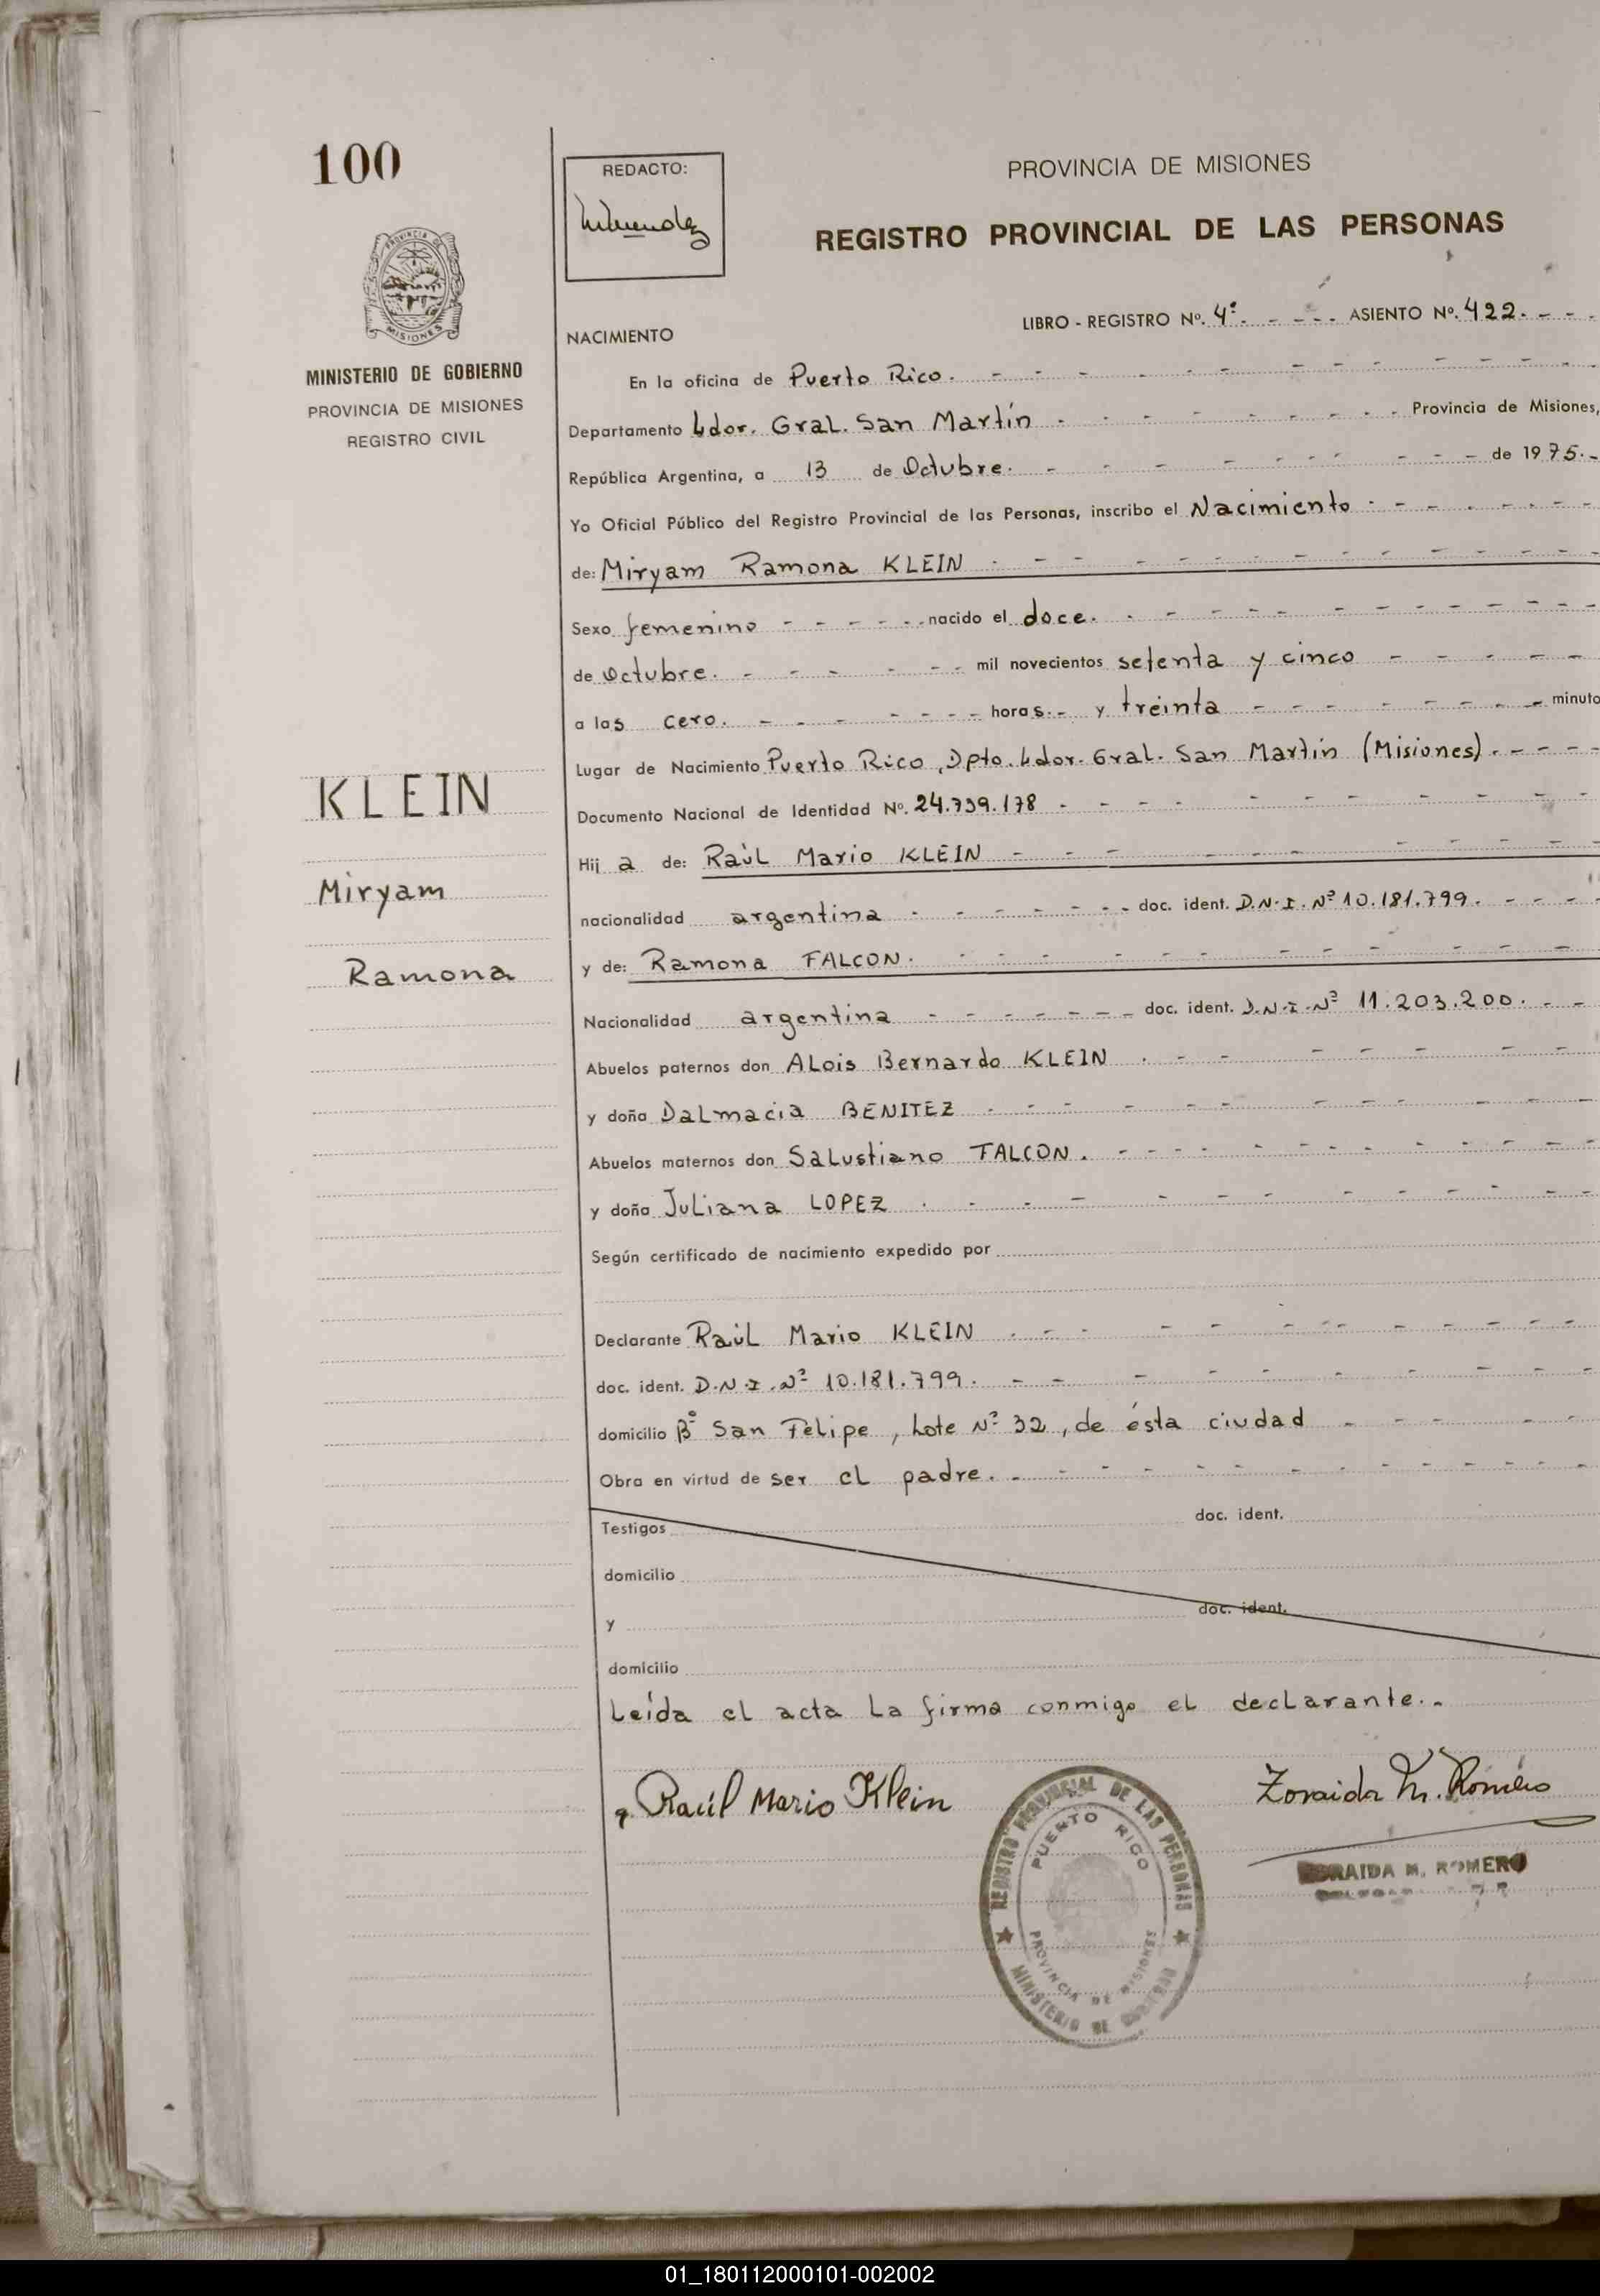 100
PROVINCIA DE
MISIONES
MINISTERIO DE GOBIERNO
PROVINCIA DE MISIONES
REGISTRO CIVIL
KLEIN
Miryam
Ramona
REDACTO:
PROVINCIA DE MISIONES
REGISTRO PROVINCIAL DE LAS PERSONAS
LIBRO - REGISTRO Nº. 4º. - - - - ASIENTO Nº. 422. - - -
NACIMIENTO
En la oficina de Puerto Rico.
Departamento Ldor. Gral. San Martín - Provincia de Misiones,
República Argentina, a 13 de Octubre. - de 1975.-
Yo Oficial Público del Registro Provincial de las Personas, inscribo el Nacimiento
de: Miryam Ramona KLEIN
Sexo femenino - - - - - nacido el doce.
de Octubre. - - - - - mil novecientos setenta y cinco
a las cero. - - - - - horas.- y treinta - - - - - minuto
Lugar de Nacimiento Puerto Rico, Dpto. Ldor. Gral. San Martín (Misiones). - - - -
Documento Nacional de Identidad Nº. 24.759.178
Hija de: Raúl Mario KLEIN
nacionalidad argentina - - - - - doc. ident. D.N.I. Nº 10.181.799.
y de: Ramona FALCON.
Nacionalidad argentina - - - - - doc. ident. D.N.I. Nº 11.203.200.
Abuelos paternos don ALois Bernardo KLEIN
y doña Dalmacia BENITEZ
Abuelos maternos don Salustiano FALCON.
y doña Juliana LOPEZ
Según certificado de nacimiento expedido por
Declarante Raúl Mario KLEIN
doc. ident. D.N.I. Nº 10.181.799.
domicilio Bº San Felipe, Lote Nº 32, de ésta ciudad
Obra en virtud de ser el padre.
Testigos doc. ident.
domicilio
y doc. ident.
domicilio
Leída el acta la firma conmigo el declarante..
Raúl Mario Klein
Zoraida M. Romero
REGISTRO PROVINCIAL DE LAS PERSONAS
PUERTO RICO
PROVINCIA DE MISIONES
MINISTERIO DE GOBIERNO
ZORAIDA M. ROMERO
01_180112000101-002002